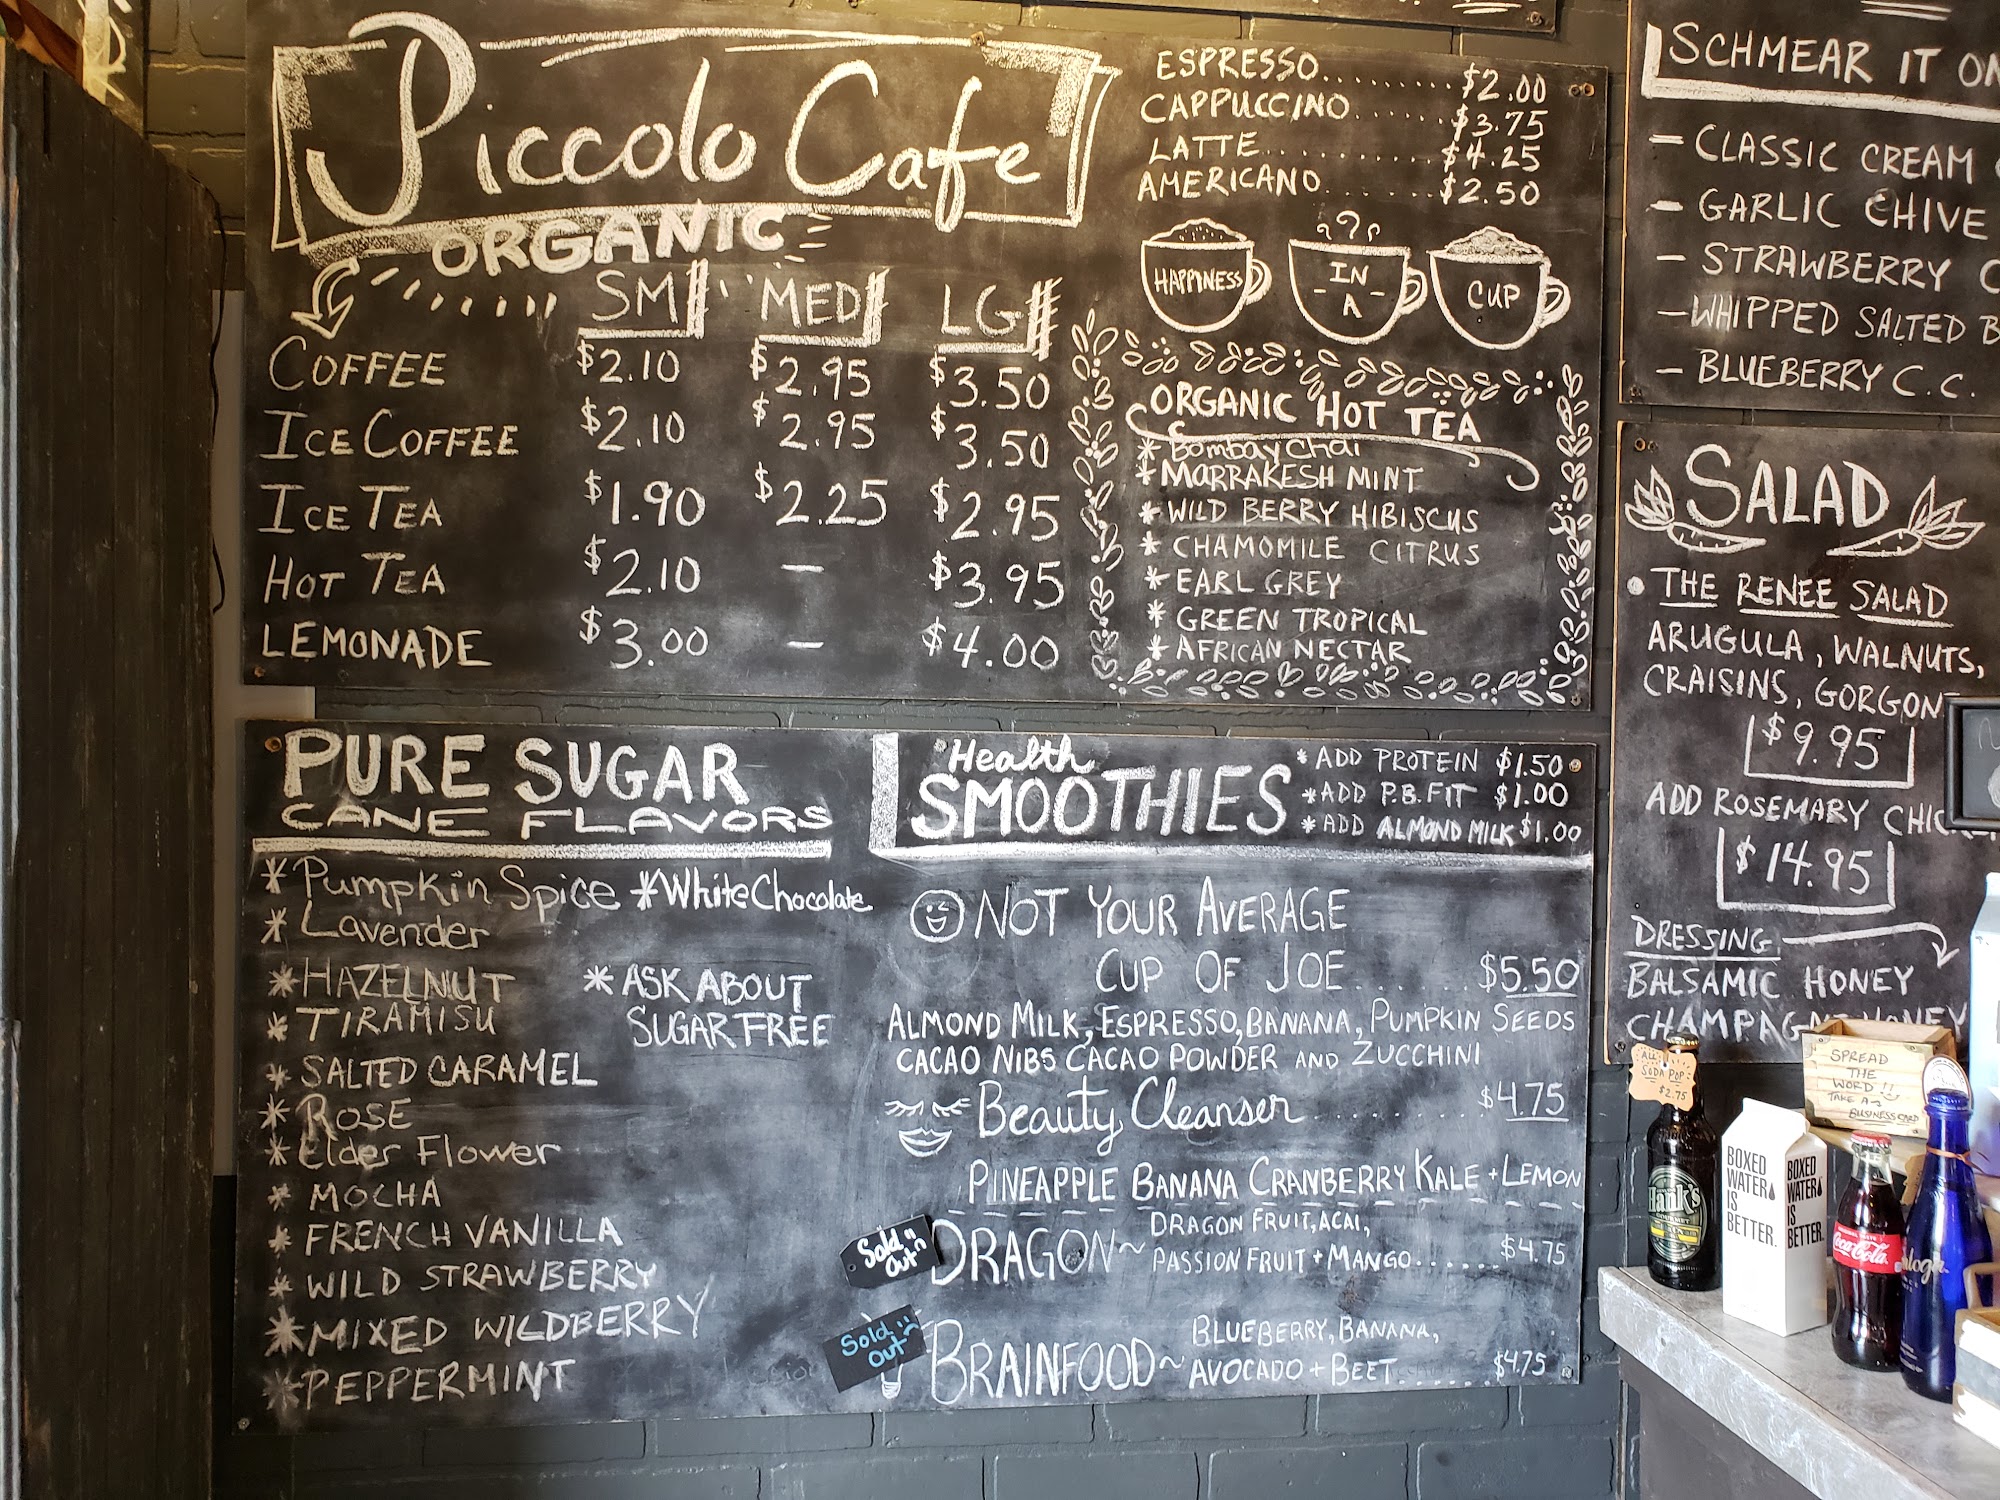 Piccolo Cafe
ORGANIC
SM MED LG
COFFEE $2.10 $2.95 $3.50
ICE COFFEE $2.10 $2.95 $3.50
ICE TEA $1.90 $2.25 $2.95
HOT TEA $2.10 - $3.95
LEMONADE $3.00 - $4.00
ESPRESSO........$2.00
CAPPUCCINO......$3.75
LATTE...........$4.25
AMERICANO.......$2.50
HAPPINESS
IN
- A -
CUP
ORGANIC HOT TEA
* Bombay Chai
* MARRAKESH MINT
* WILD BERRY HIBISCUS
* CHAMOMILE CITRUS
* EARL GREY
* GREEN TROPICAL
* AFRICAN NECTAR
PURE SUGAR
CANE FLAVORS
* Pumpkin Spice * White Chocolate
* Lavender
* HAZELNUT
* TIRAMISU
* SALTED CARAMEL
* ROSE
* Elder Flower
* MOCHA
* FRENCH VANILLA
* WILD STRAWBERRY
* MIXED WILDBERRY
* PEPPERMINT
* ASK ABOUT
SUGAR FREE
Health
SMOOTHIES
* ADD PROTEIN $1.50
* ADD P.B. FIT $1.00
* ADD ALMOND MILK $1.00
NOT YOUR AVERAGE
CUP OF JOE......$5.50
ALMOND MILK, ESPRESSO, BANANA, PUMPKIN SEEDS
CACAO NIBS CACAO POWDER AND ZUCCHINI
Beauty Cleanser........$4.75
PINEAPPLE BANANA CRANBERRY KALE + LEMON
Sold
Out
DRAGON~ DRAGON FRUIT, ACAI,
PASSION FRUIT + MANGO......$4.75
Sold
Out
BRAINFOOD~ BLUEBERRY, BANANA,
AVOCADO + BEET......$4.75
SCHMEAR IT ON
- CLASSIC CREAM
- GARLIC CHIVE
- STRAWBERRY C
- WHIPPED SALTED B
- BLUEBERRY C.C.
SALAD
• THE RENEE SALAD
ARUGULA, WALNUTS,
CRAISINS, GORGON
$9.95
ADD ROSEMARY
$14.95
DRESSING
BALSAMIC HONEY
CHAMPAGNE HONEY
ALL
SODA POP
$2.75
SPREAD
THE
WORD!!
TAKE A
BUSINESS CARD
Hank's
GOURMET
BOXED
WATER
IS
BETTER.
BOXED
WATER
IS
BETTER.
Coca-Cola